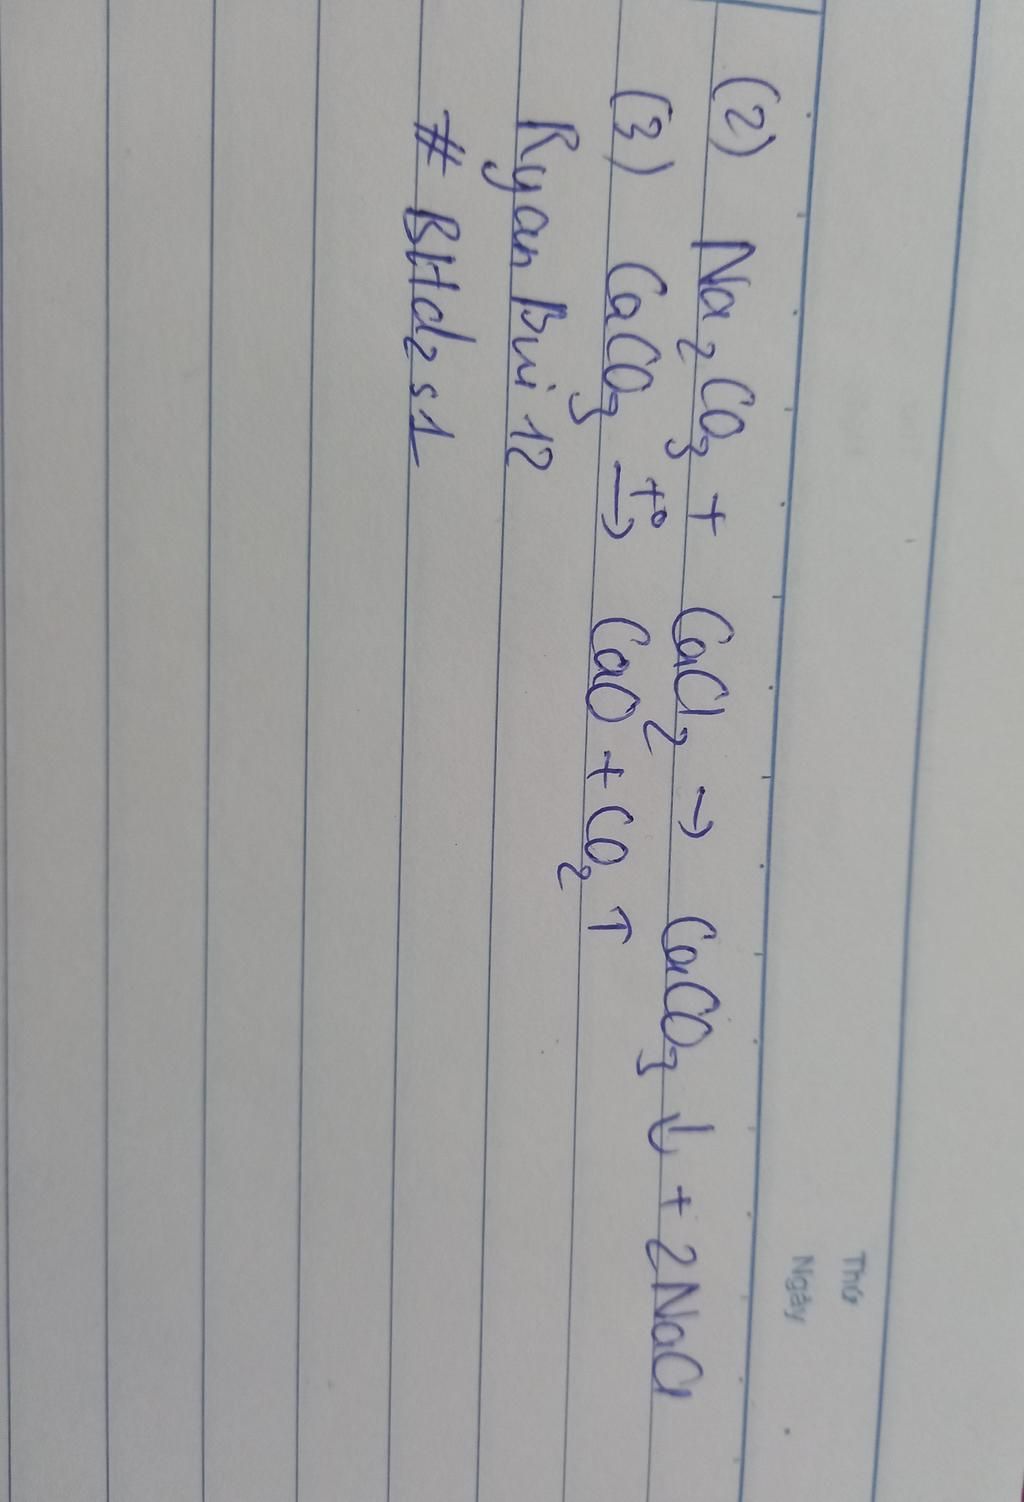 Thứ
Ngày
(2) Na₂CO₃ + CaCl₂ → CaCO₃ ↓ + 2NaCl
(3) CaCO₃ –t°→ CaO + CO₂ ↑
Ryan Bui 12
# BHd₂s1